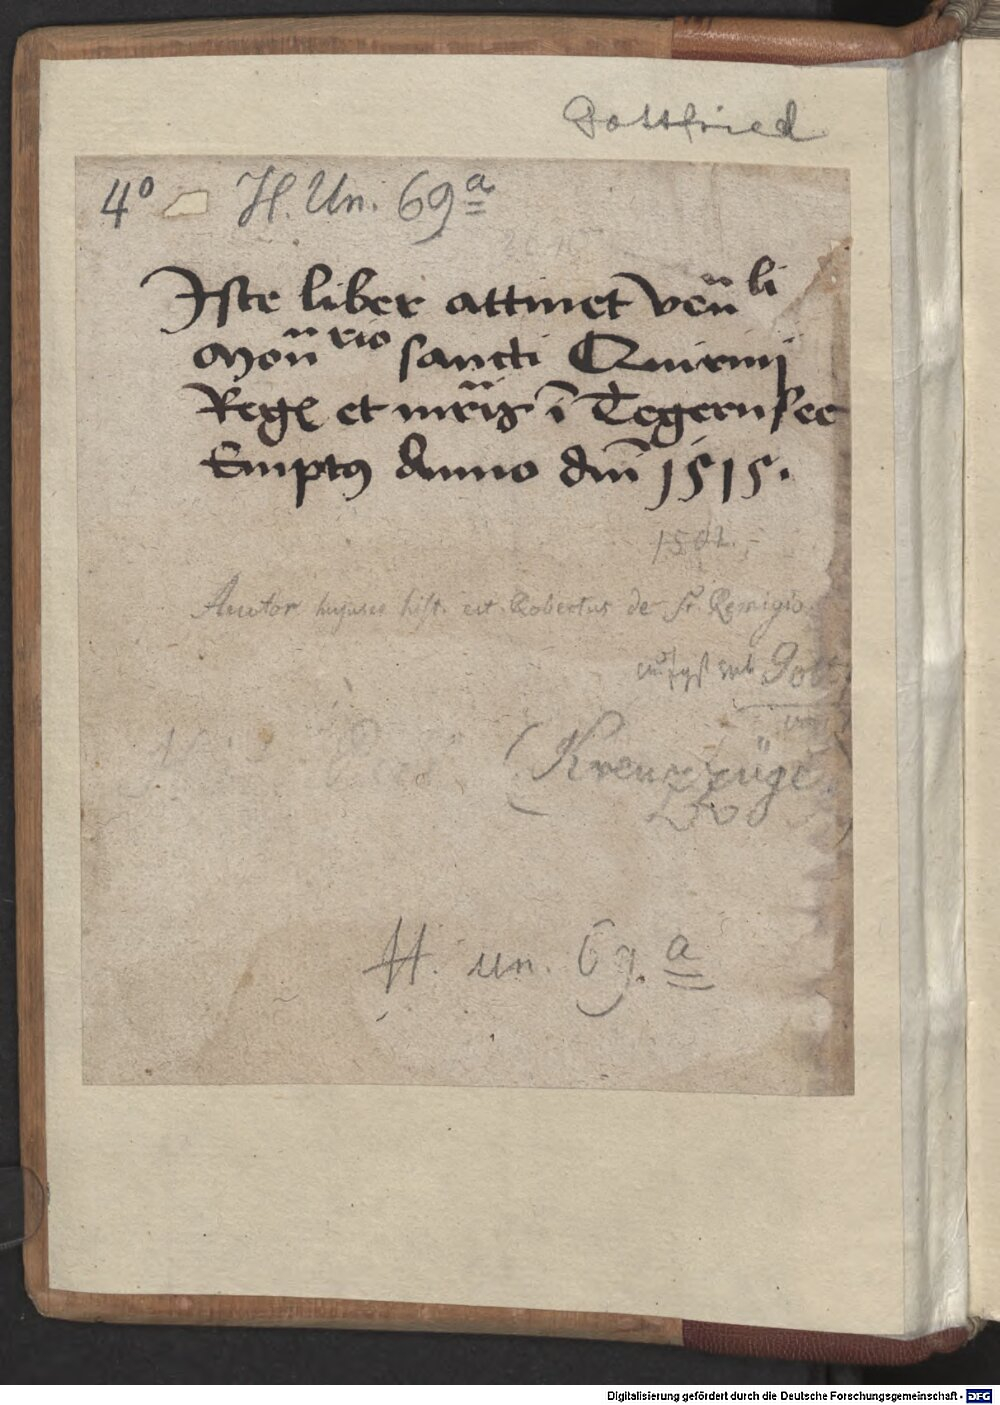 Gottfried
4° H. Un. 69 a
Iste liber attinet veñli
Moñrio sancti Quirini
Reg# et mr̃is ĩ Tegernsee
Emptꝰ Anno dñi 1515.
1502.
Auctor hujus hist. est Robertus de St. Remigio
Gott
von
(Kreuzzüge)
H. un. 69. a
Digitalisierung gefördert durch die Deutsche Forschungsgemeinschaft - DFG